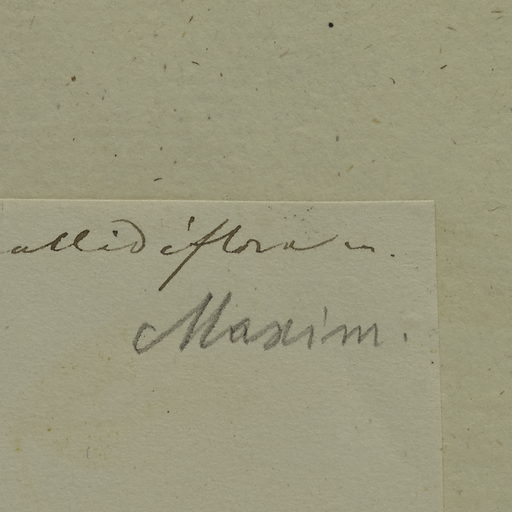 allidiflora m.
Maxim.